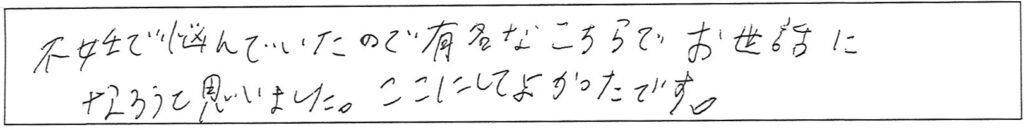 不妊で悩んでいたので有名なこちらでお世話に
なろうと思いました。ここにしてよかったです。